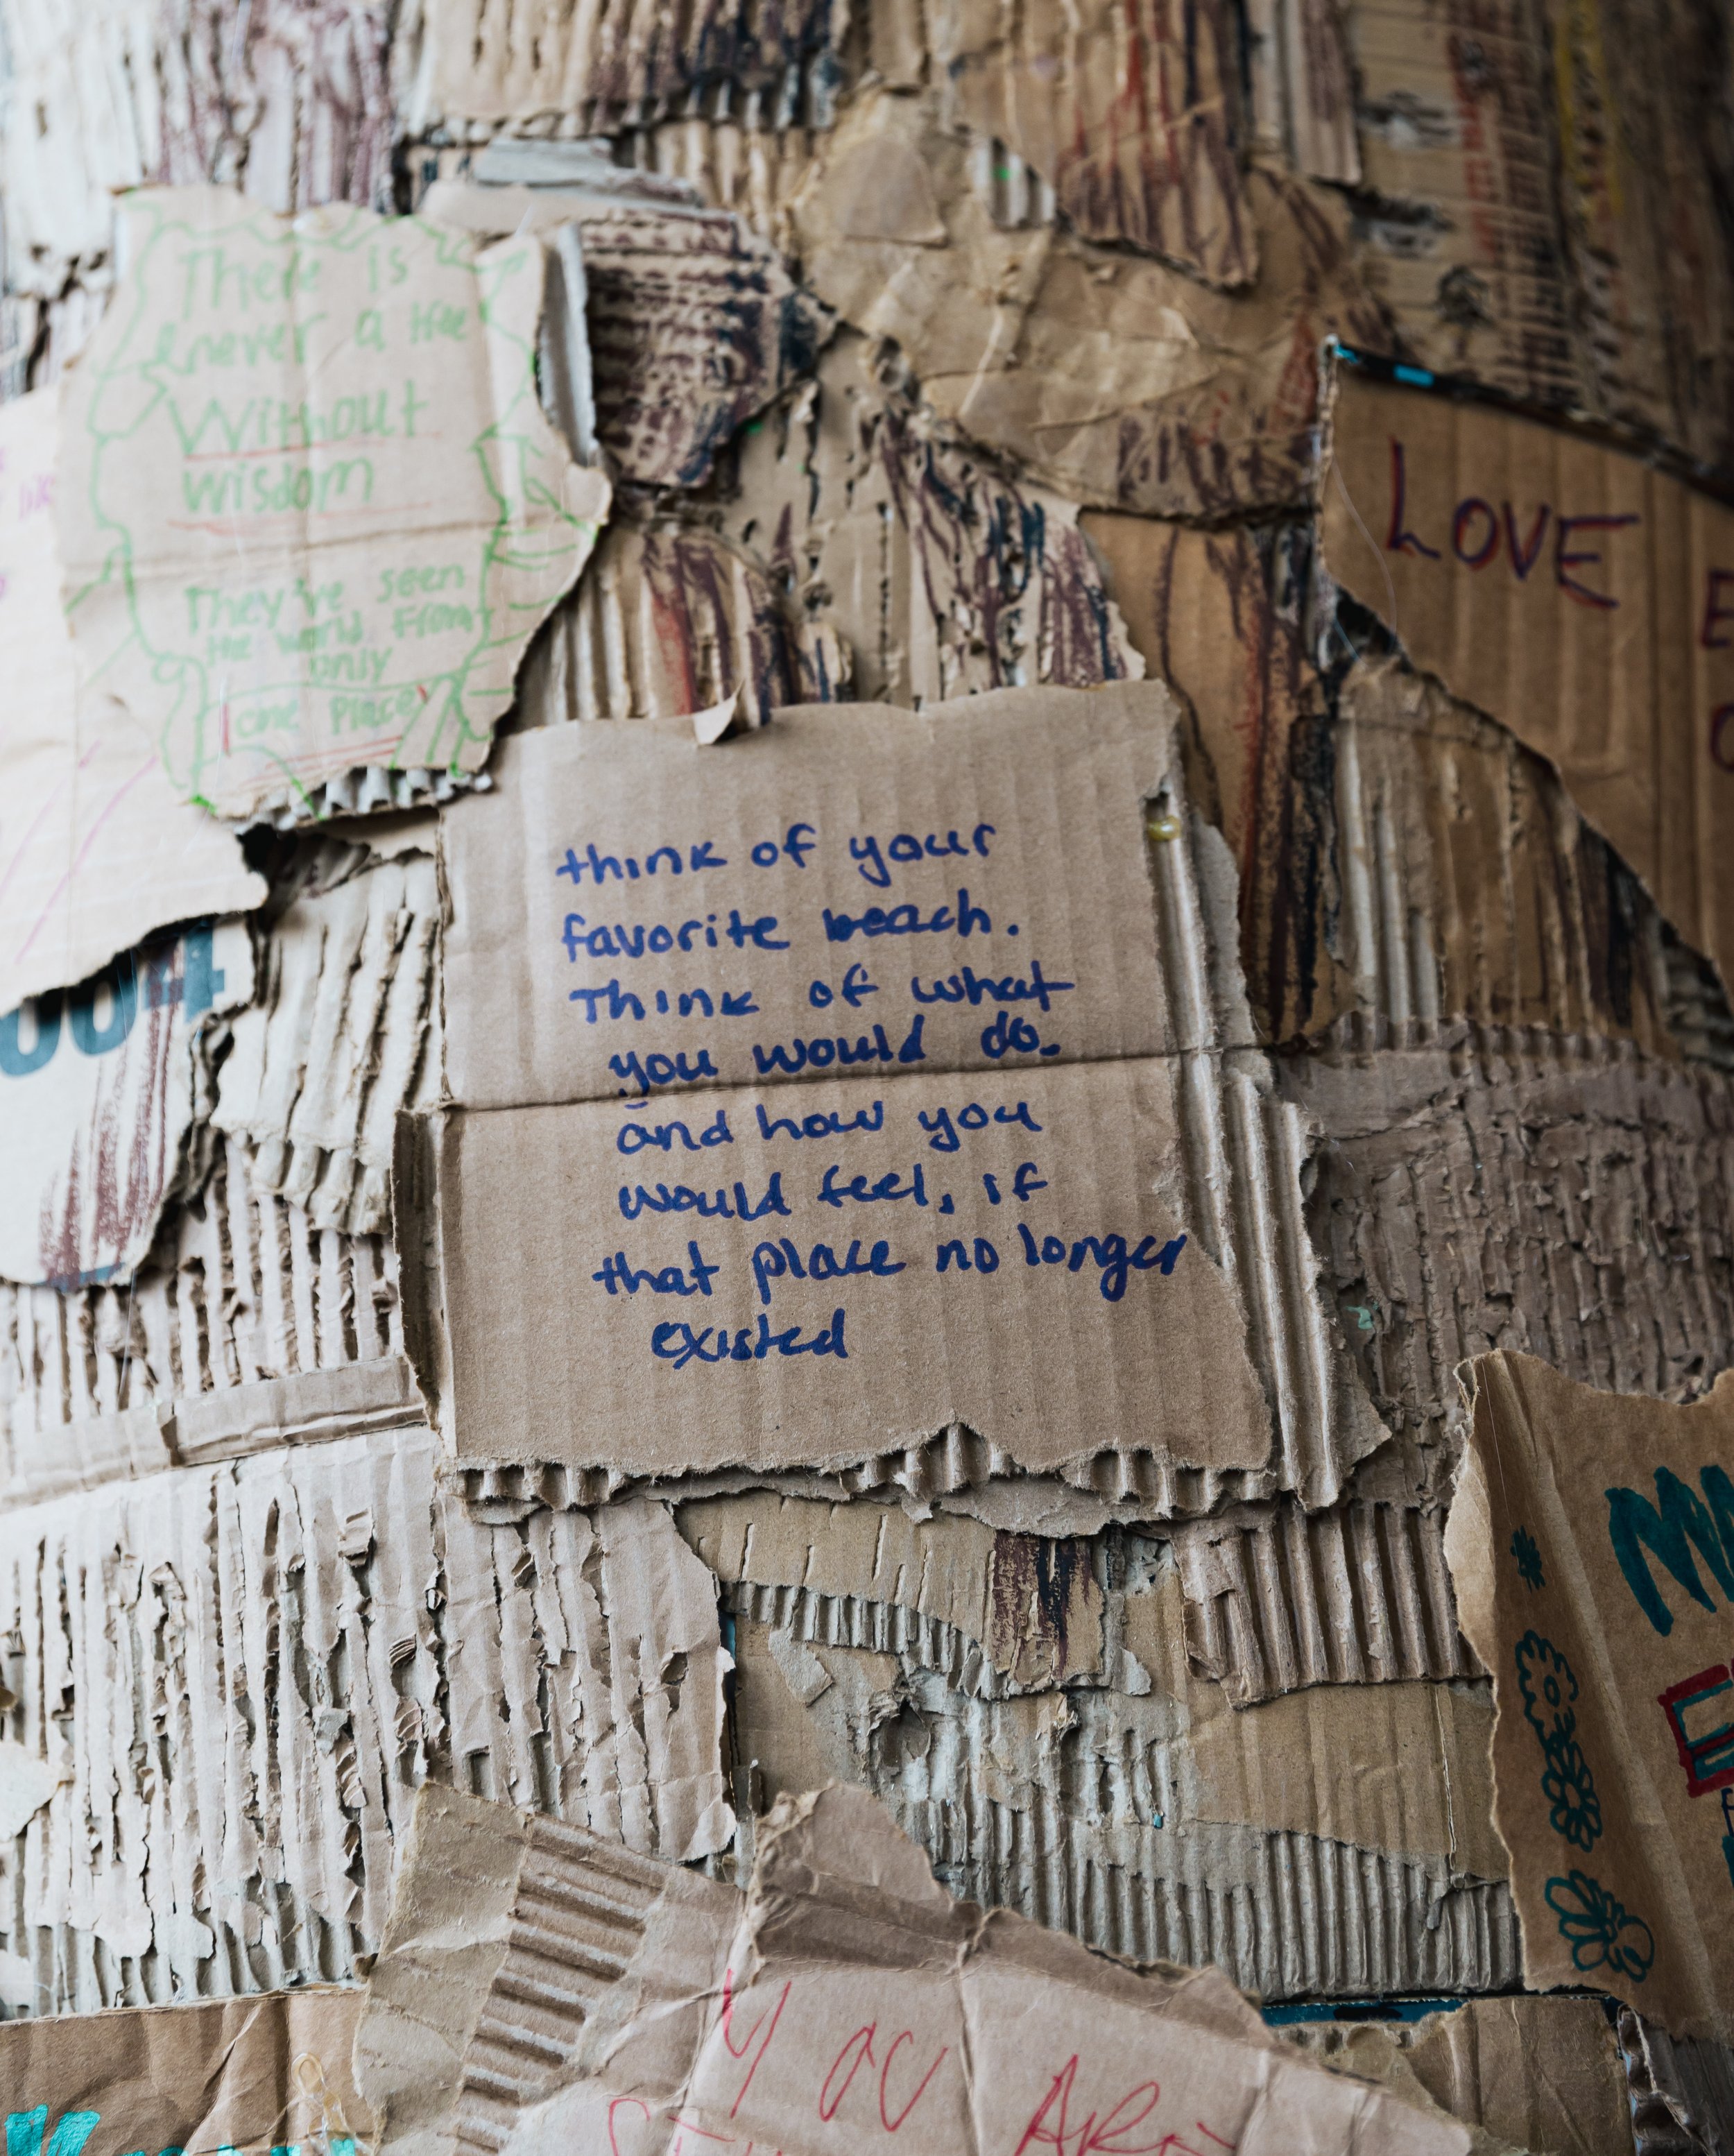 There is
never a tree
Without
wisdom
They've seen
the world from
only
one place
LOVE
004
think of your
favorite beach.
Think of what
you would do.
and how you
would feel, if
that place no longer
existed
YOU ARE